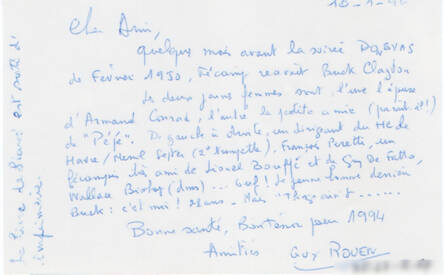 Cher Ami,
quelques mois avant la soirée DON BYAS
de Février 1950, Fécamp recevait Buck Clayton
Les deux jeunes femmes sont, l'une l'épouse
d'Armand Conrad, l'autre la petite amie
de "Pépé". De gauche à droite, un dirigeant du HC de
Havre / René (2e trompette), François Peretti, un
fécampois très ami de Lionel et de Guy De Fatto,
Wallace Bishop (dms) ... Enf! Le jeune homme derrière
Buck : c'est moi! Mais
Bonne santé, Bon Ténor pour 1994
Amitiés GUY ROUEN
Le Livre de est sorti d'
imprimerie.